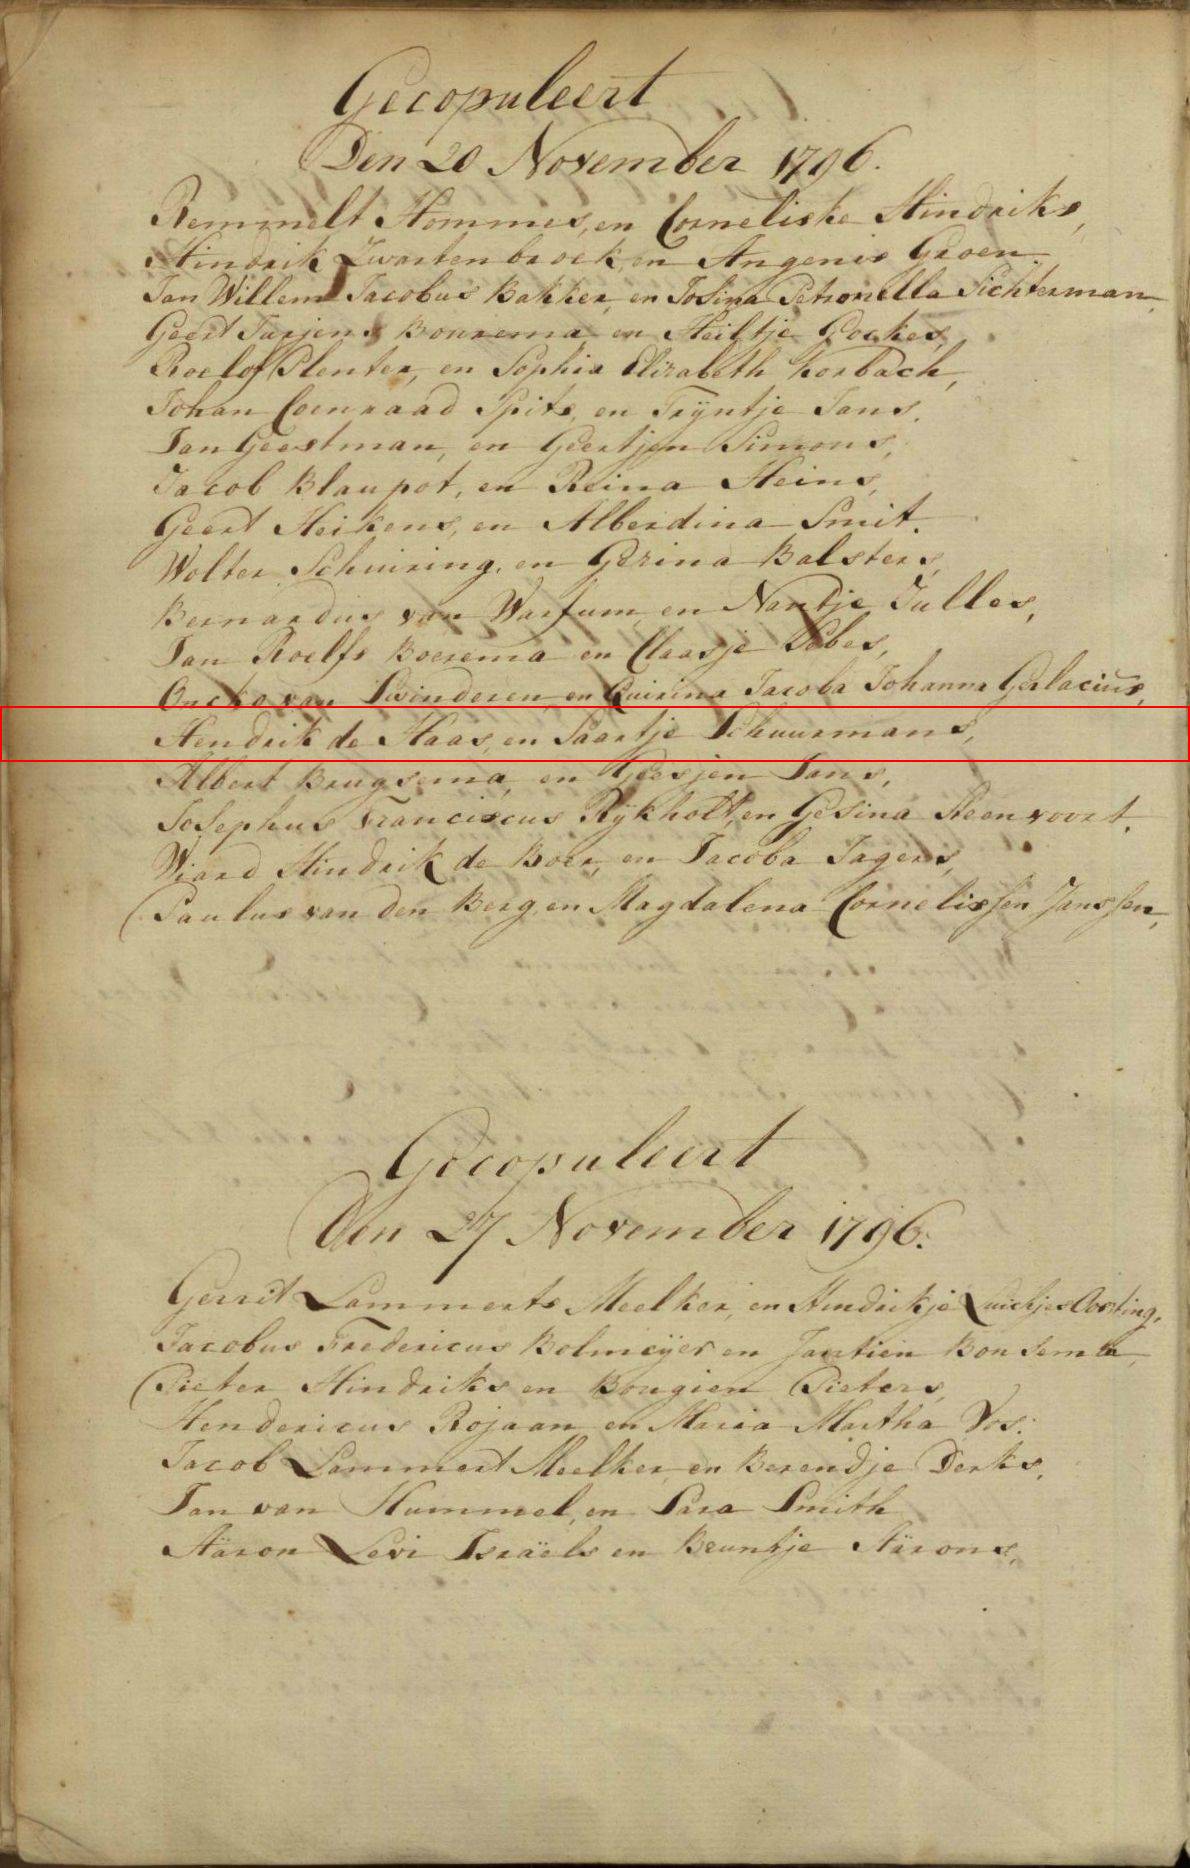 Gecopuleert
Den 20 November 1796.
Remmelt Hommes, en Corneliske Hindriks,
Hindrik Zwartenbroek, en Angenis Groen.
Jan Willem Jacobus Bakker, en Josina Petronella Sichterman,
Geert Jurjens Bouwema, en Heiltje Fockes,
Roelof Slenter, en Sophia Elizabeth Korbach,
Johan Coenraad Spits, en Trÿntje Jans.
Jan Geestman, en Geertjen Simons,
Jacob Blaupot, en Reina Heins,
Geert Heikens, en Alberdina Smit.
Wolter Schuiring, en Gezina Balsters,
Bernardus van Warfum, en Nantje Julles,
Jan Roelfs Boerema en Claasje Sebes,
Oncko van Swinderen, en Quirina Jacoba Johanna Gerlacius,
Hendrik de Haas, en Saartje Schuurmans,
Albert Brugsema, en Geesjen Jans,
Josephus Franciscus Rÿkholt, en Gesina Steenvoort.
Wiard Hindrik de Boer, en Jacoba Jagers,
Paulus van den Berg, en Magdalena Cornelissen Janssen,
Gecopuleert
Den 27 November 1796.
Gerrit Lammerts Meelker, en Hindrikje Luichjes Oosting,
Jacobus Fredericus Bolmeÿer en Jantien Bonsema,
Pieter Hindriks en Bougien Pieters,
Hendericus Rojaan en Maria Martha Vos.
Jacob Lammert Meelker, en Berendje Derks,
Jan van Hummel, en Sara Smith
Aäron Levi Israëls en Bruntje Aärons,